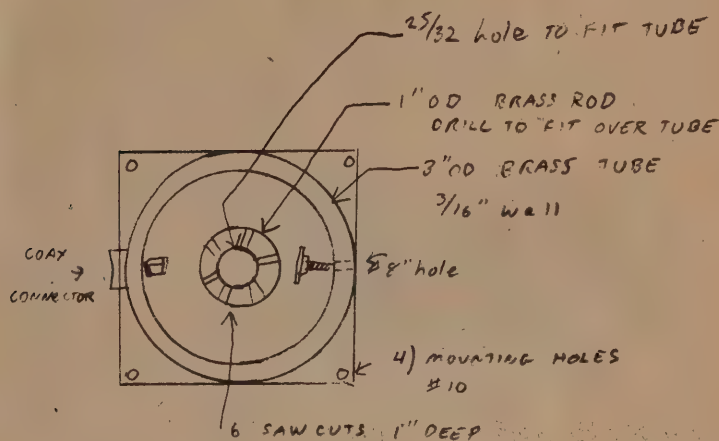 25/32 hole TO FIT TUBE
1" OD BRASS ROD
DRILL TO FIT OVER TUBE
3" OD BRASS TUBE
3/16" wall
COAX
CONNECTOR
8" hole
4) MOUNTING HOLES
#10
6 SAW CUTS 1" DEEP